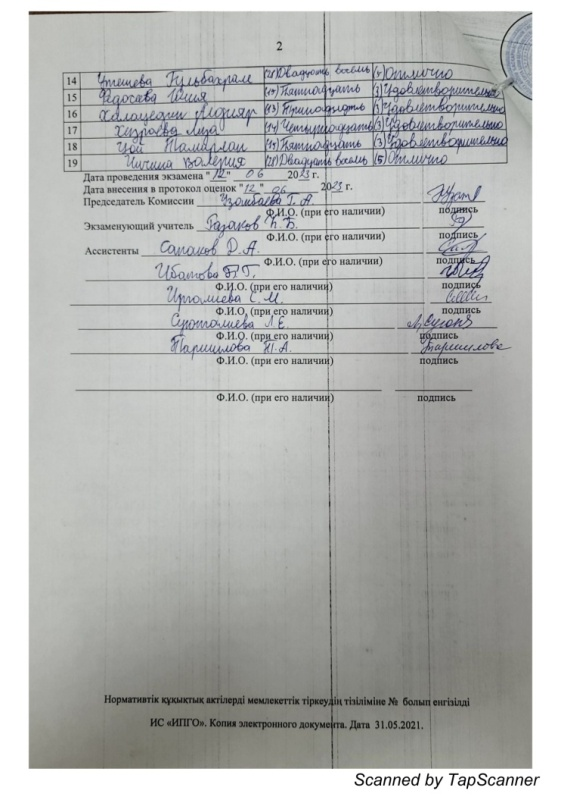 2
14 Утешева Гульбахрам (28) Двадцать восемь (5) Отлично
15 Федосова Юлия (15) Пятнадцать (3) Удовлетворительно
16 (13) Тринадцать (3) Удовлетворительно
17 Хизроева Лиза (14) Четырнадцать (3) Удовлетворительно
18 Цой Тамирлан (15) Пятнадцать (3) Удовлетворительно
19 Чичина Валерия (28) Двадцать восемь (5) Отлично
Дата проведения экзамена "12" 06 2023 г.
Дата внесения в протокол оценок "12" 06 2023 г.
Председатель Комиссии Узомбаева Г. А.
Ф.И.О. (при его наличии) подпись
Экзаменующий учитель Разаков К.Б.
Ф.И.О. (при его наличии) подпись
Ассистенты Сапаков Д.А.
Ф.И.О. (при его наличии) подпись
Ибатова Б.Г.
Ф.И.О. (при его наличии) подпись
С. М.
Ф.И.О. (при его наличии) подпись
Л.Е.
Ф.И.О. (при его наличии) подпись
Паршилова Н.А.
Ф.И.О. (при его наличии) подпись
Ф.И.О. (при его наличии) подпись
Нормативтік құқықтық актілерді мемлекеттік тіркеудің тізіліміне № болып енгізілді
ИС «ИПГО». Копия электронного документа. Дата 31.05.2021.
Scanned by TapScanner